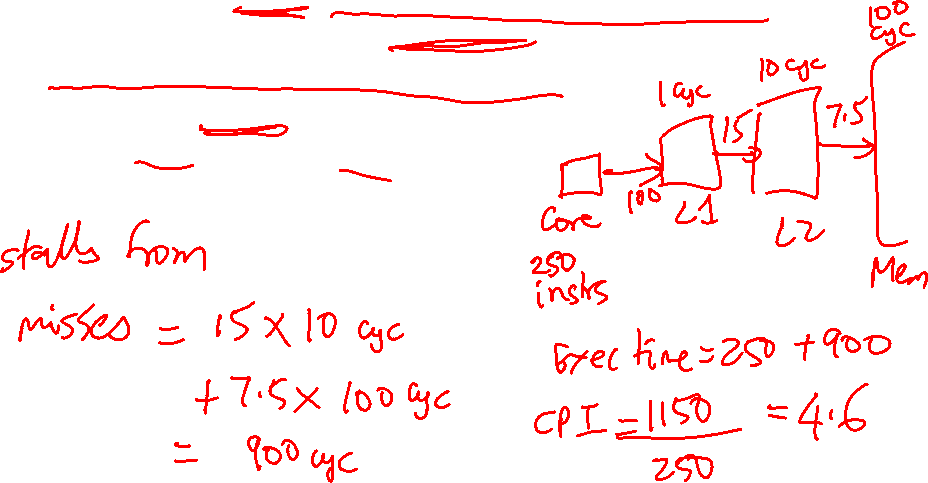 100
cyc
10 cyc
1 cyc
15
7.5
100
Core
L1
L2
Mem
250
instrs
stalls from
misses = 15 × 10 cyc
+ 7.5 × 100 cyc
= 900 cyc
Exec time = 250 + 900
CPI = 1150 = 4.6
250